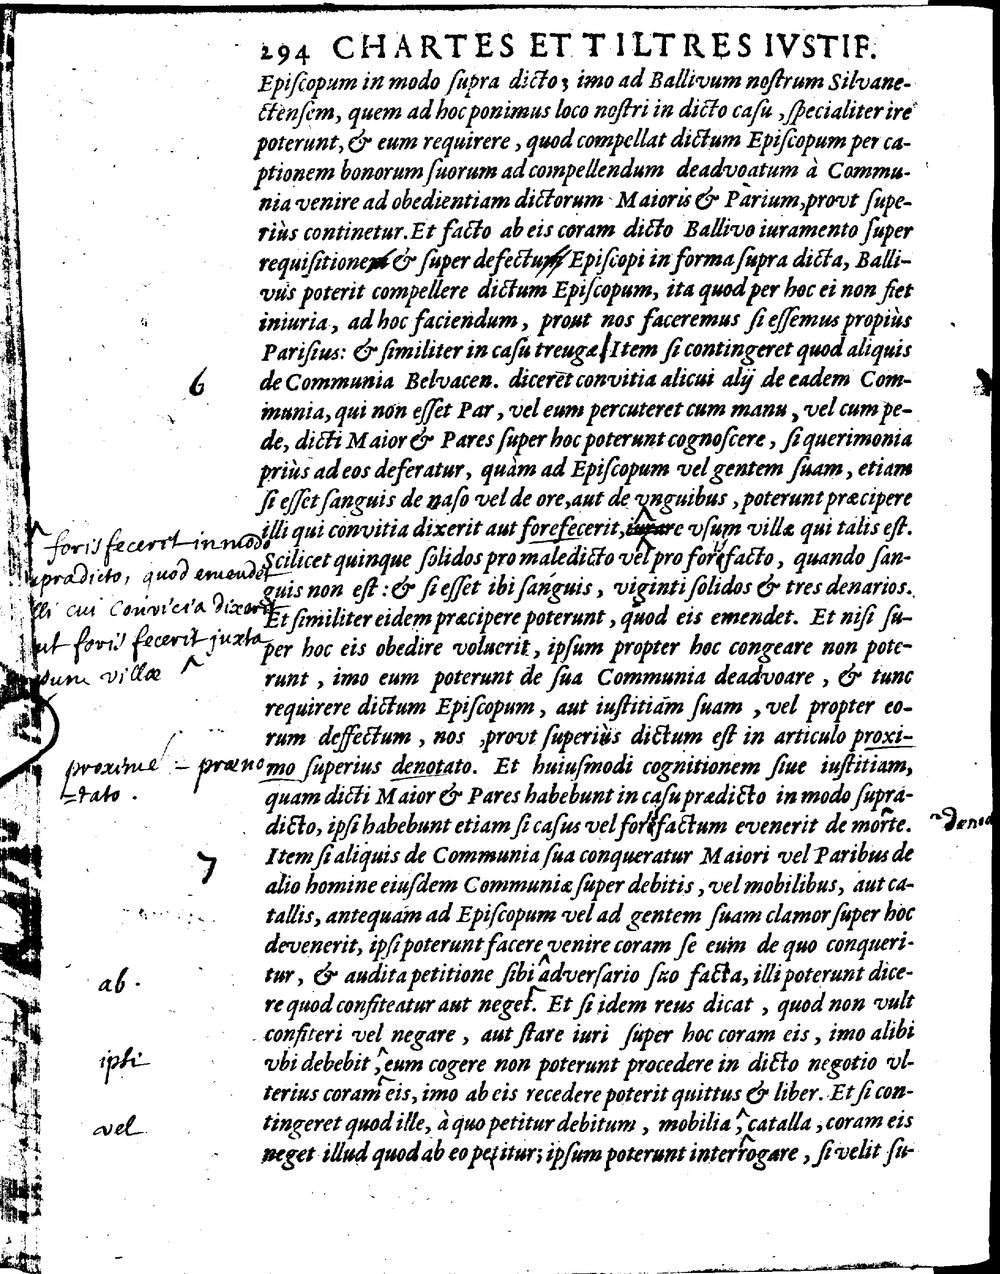 294 CHARTES ET TILTRES IVSTIF.
Epiſcopum in modo ſupra dicto; imo ad Ballivum noſtrum Silvane-
ctenſem, quem ad hoc ponimus loco noſtri in dicto caſu, ſpecialiter ire
poterunt, & eum requirere, quod compellat dictum Epiſcopum per ca-
ptionem bonorum ſuorum ad compellendum deadvoatum à Commu-
nia venire ad obedientiam dictorum Maioris & Parium, provt ſupe-
riùs continetur. Et facto ab eis coram dicto Ballivo iuramento ſuper
requiſitionem & ſuper defectum Epiſcopi in forma ſupra dicta, Balli-
vus poterit compellere dictum Epiſcopum, ita quod per hoc ei non fiet
iniuria, ad hoc faciendum, prout nos faceremus ſi eſſemus propiùs
Pariſius: & ſimiliter in caſu treugæ. Item ſi contingeret quod aliquis
6
de Communia Belvacen. diceret convitia alicui alij de eadem Com-
munia, qui non eſſet Par, vel eum percuteret cum manu, vel cum pe-
de, dicti Maior & Pares ſuper hoc poterunt cognoſcere, ſi querimonia
priùs ad eos deferatur, quàm ad Epiſcopum vel gentem ſuam, etiam
ſi eſſet ſanguis de naſo vel de ore, aut de vnguibus, poterunt præcipere
illi qui convitia dixerit aut forefecerit, iurare vſum villæ qui talis eſt.
^ foris fecerit in modo
ſupradicto, quod emendet
illi cui convicia dixerit
ut foris fecerit juxta
usum villæ ^
Scilicet quinque ſolidos pro maledicto vel pro forefacto, quando ſan-
guis non eſt: & ſi eſſet ibi ſanguis, viginti ſolidos & tres denarios.
Et ſimiliter eidem præcipere poterunt, quod eis emendet. Et niſi ſu-
per hoc eis obedire voluerit, ipſum propter hoc congeare non pote-
runt, imo eum poterunt de ſua Communia deadvoare, & tunc
requirere dictum Epiſcopum, aut iuſtitiam ſuam, vel propter eo-
rum deffectum, nos, provt ſuperiùs dictum eſt in articulo proxi-
mo ſuperius denotato. Et huiuſmodi cognitionem ſiue iuſtitiam,
proxime - præno
-tato.
quam dicti Maior & Pares habebunt in caſu prædicto in modo ſupra-
dicto, ipſi habebunt etiam ſi caſus vel forefactum evenerit de morte.
7
Item ſi aliquis de Communia ſua conqueratur Maiori vel Paribus de
alio homine eiuſdem Communiæ ſuper debitis, vel mobilibus, aut ca-
tallis, antequam ad Epiſcopum vel ad gentem ſuam clamor ſuper hoc
devenerit, ipſi poterunt facere venire coram ſe eum de quo conqueri-
tur, & audita petitione ſibi adverſario ſuo facta, illi poterunt dice-
ab.
re quod confiteatur aut neget. Et ſi idem reus dicat, quod non vult
confiteri vel negare, aut ſtare iuri ſuper hoc coram eis, imo alibi
vbi debebit, eum cogere non poterunt procedere in dicto negotio vl-
ipsi
terius coram eis, imo ab eis recedere poterit quittus & liber. Et ſi con-
tingeret quod ille, à quo petitur debitum, mobilia, catalla, coram eis
vel
neget illud quod ab eo petitur; ipſum poterunt interrogare, ſi velit ſu-